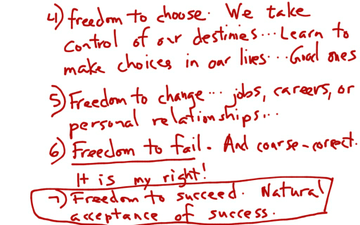 4) freedom to choose. We take
control of our destinies... Learn to
make choices in our lives... Good ones
5) Freedom to change... jobs, careers, or
personal relationships...
6) Freedom to fail. And coarse-correct.
It is my right!
7) Freedom to succeed. Natural
acceptance of success.